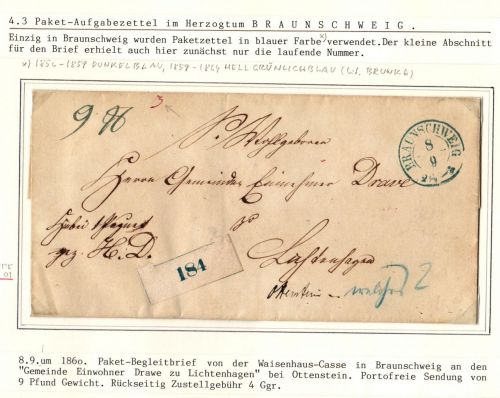 4.3 Paket-Aufgabezettel im Herzogtum BRAUNSCHWEIG.
Einzig in Braunschweig wurden Paketzettel in blauer Farbe x) verwendet.Der kleine Abschnitt
für den Brief erhielt auch hier zunächst nur die laufende Nummer.
x) 1856-1859 DUNKELBLAU, 1859-1864 HELLGRÜNLICHBLAU (
3
9
Wohlgeboren
BRAUNSCHWEIG
8
9
Herrn Gemeinde Einnehmer Drave
zu
Hiebei 1 Paquet
gez. H. D.
Lichtenhagen
184
Ottenstein
welches 2
8.9.um 186o. Paket-Begleitbrief von der Waisenhaus-Casse in Braunschweig an den
"Gemeinde Einwohner Drawe zu Lichtenhagen" bei Ottenstein. Portofreie Sendung von
9 Pfund Gewicht. Rückseitig Zustellgebühr 4 Ggr.